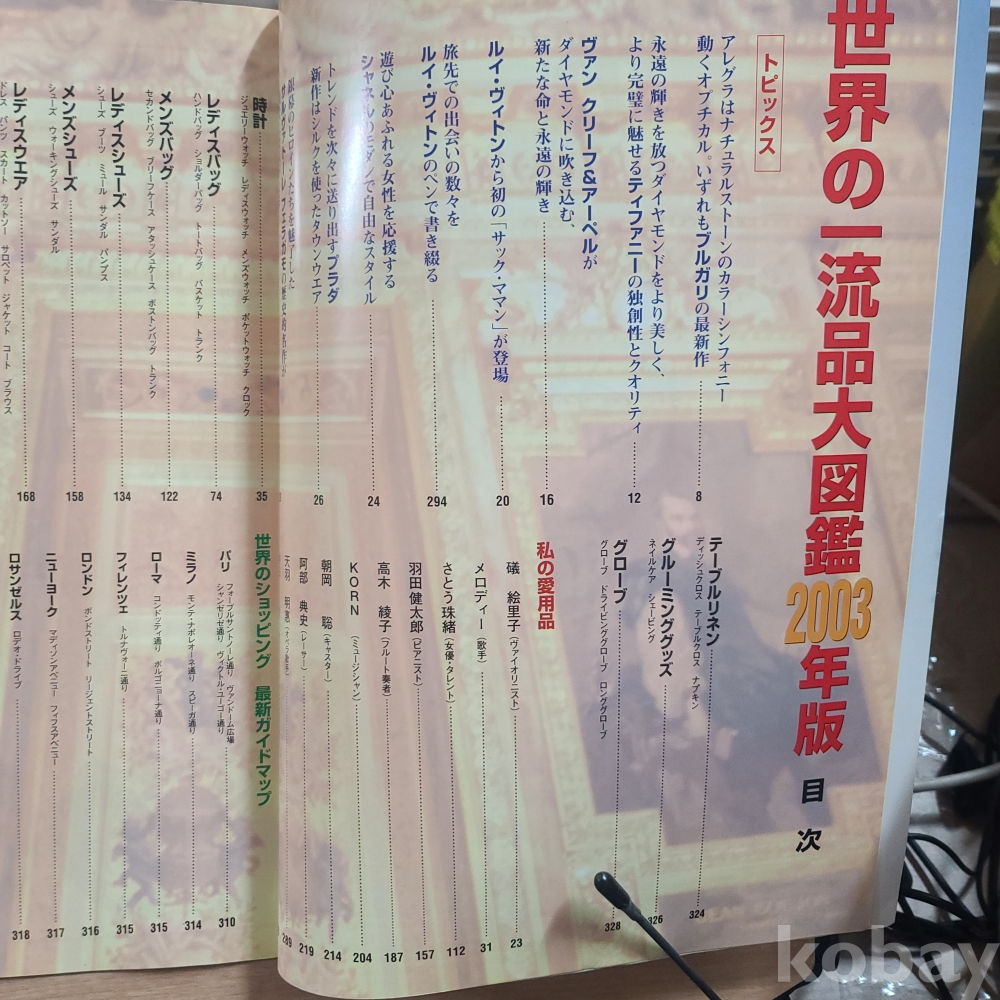 世界の一流品大図鑑2003年版 目次
トピックス
アレグラはナチュラルストーンのカラーシンフォニー
動くオプチカル。いずれもブルガリの最新作 8
永遠の輝きを放つダイヤモンドをより美しく、
より完璧に魅せるティファニーの独創性とクオリティ 12
ヴァン クリーフ&アーペルが
ダイヤモンドに吹き込む、
新たな命と永遠の輝き 16
ルイ・ヴィトンから初の「サック・ママン」が登場 20
旅先での出会いの数々を
ルイ・ヴィトンのペンで書き綴る 294
遊び心あふれる女性を応援する
シャネルのモダンで自由なスタイル 24
トレンドを次々に送り出すプラダ
新作はシルクを使ったタウンウエア 26
銀幕のヒロインたちを魅了した
テーブルリネン 324
ディッシュクロス テーブルクロス ナプキン
グルーミンググッズ 326
ネイルケア シェービング
グローブ 328
グローブ ドライビンググローブ ロンググローブ
私の愛用品
礒 絵里子(ヴァイオリニスト) 23
メロディー(歌手) 31
さとう珠緒(女優・タレント) 112
羽田健太郎(ピアニスト) 157
高木 綾子(フルート奏者) 187
KORN(ミュージシャン) 204
朝岡 聡(キャスター) 214
阿部 典史(レーサー) 219
289
時計 35
ジュエリーウォッチ レディスウォッチ メンズウォッチ ポケットウォッチ クロック
レディスバッグ 74
ハンドバッグ ショルダーバッグ トートバッグ バスケット トランク
メンズバッグ 122
セカンドバッグ ブリーフケース アタッシュケース ボストンバッグ トランク
レディスシューズ 134
シューズ ブーツ ミュール サンダル パンプス
メンズシューズ 158
シューズ ウォーキングシューズ サンダル
レディスウエア 168
ドレス パンツ スカート カットソー サロペット ジャケット コート ブラウス
世界のショッピング 最新ガイドマップ
パリ 310
フォーブルサントノーレ通り ヴァンドーム広場
シャンゼリゼ通り ヴィクトル・ユーゴー通り
ミラノ モンテ・ナポレオーネ通り スピーガ通り 314
ローマ コンドッティ通り ボルゴニョーナ通り 315
フィレンツェ トルナヴォーニ通り 315
ロンドン ボンドストリート リージェントストリート 316
ニューヨーク マディソンアベニュー フィフスアベニュー 317
ロサンゼルス ロデオ・ドライブ 318
kobay